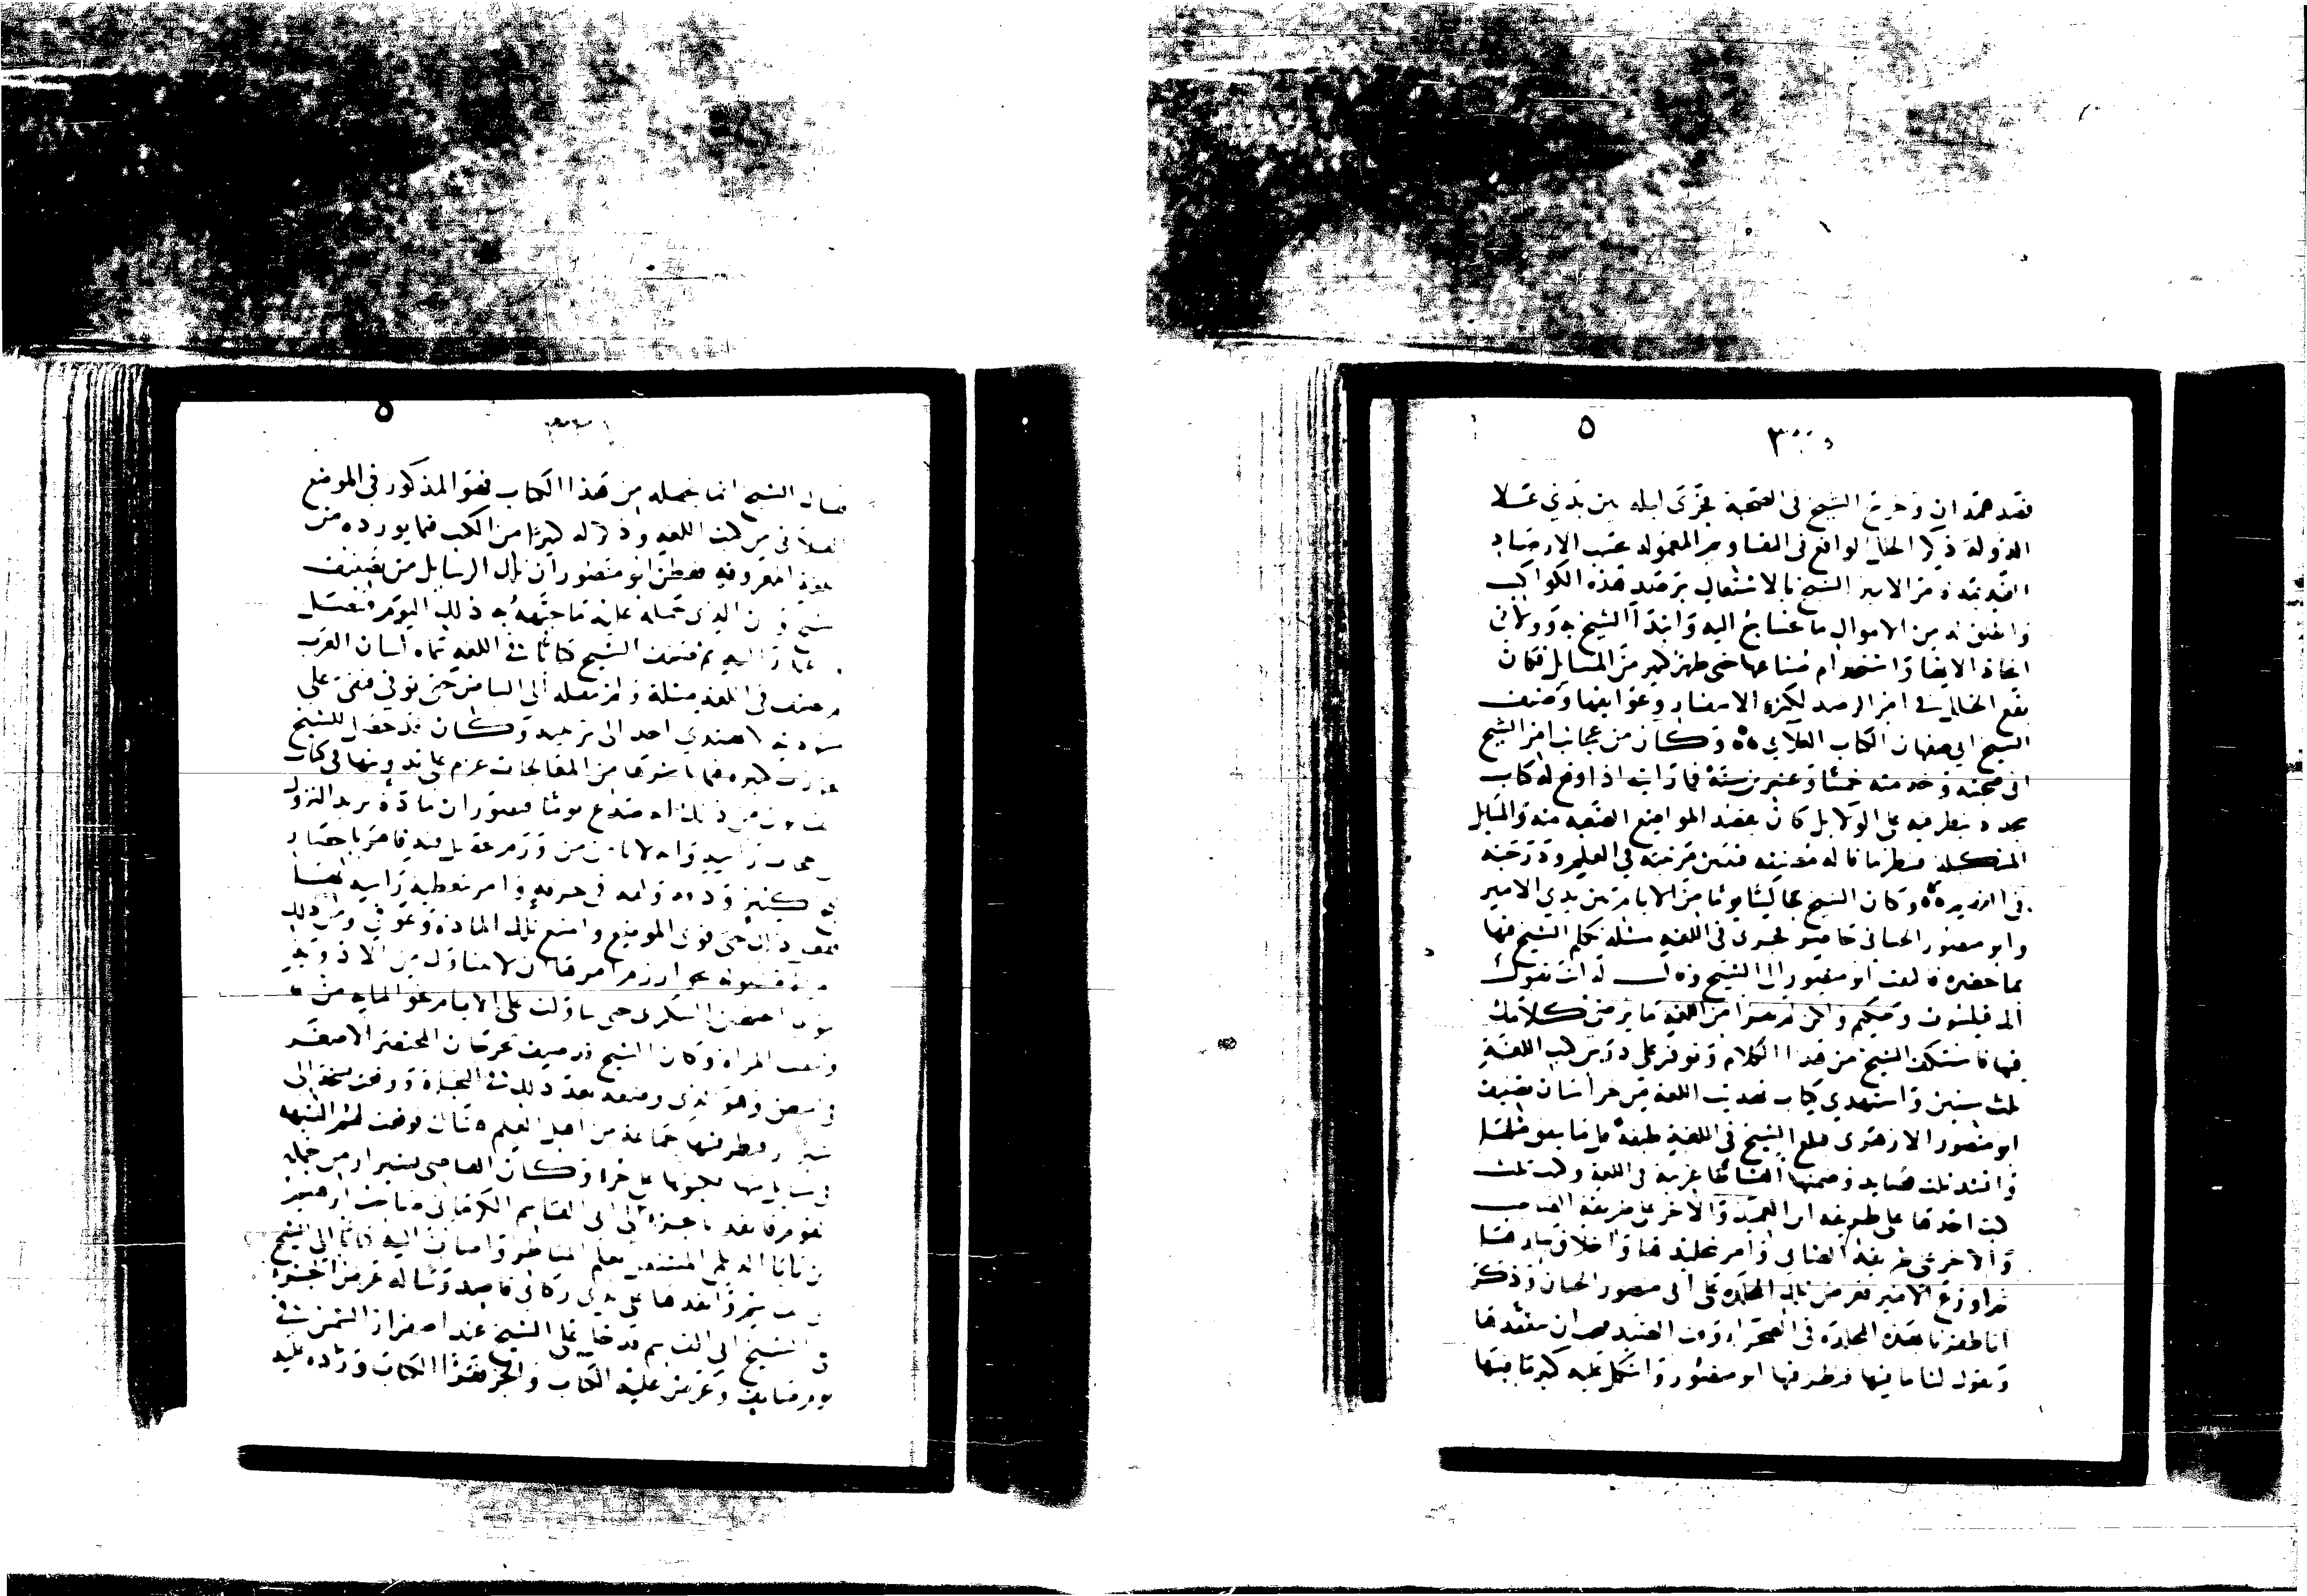 ٥
فقصد همدان وخرج الشيخ في الصحبة فجرى ليله بين يدي علا
الدولة ذكر الخلل الواقع في التقاويم المعموله بحسب الارصاد
القديمة فامر الامير الشيخ بالاشتغال برصد هذه الكواكب
واطلق له من الاموال ما يحتاج اليه وابتدا الشيخ به وولاني
اتخاذ الاتها واستخدام صناعها حتى ظهر كثير من المسايل فكان
يقع الخلل في امر الرصد لكثرة الاسفار وعوايقها وصنف
الشيخ اصفهان الكتاب العلاي ه وكان من عجايب امر الشيخ
اني صحبته وخدمته خمسا وعشرين سنة فما رايته اذا وقع له كتاب
مجدد ينظر فيه على الولا بل كان يقصد المواضع الصعبه منه والمسايل
المشكله فينظر ما قاله مصنفه فيتبين مرتبته في العلم ودرجته
في الفهم ه وكان الشيخ جالسا يوما من الايام بين يدي الامير
وابو منصور الجبائي حاضر فجرى في اللغه مسئله تكلم الشيخ فيها
بما حضره فالتفت ابو منصور الى الشيخ وقال له انت تقول
انك فيلسوف وحكيم ولكن لم تقرا من اللغة ما يرضى كلامك
فيها فاستنكف الشيخ من هذا الكلام وتوفر على درس كتب اللغة
ثلث سنين واستهدى كتاب تهذيب اللغة من خراسان تصنيف
ابو منصور الازهري فبلغ الشيخ في اللغة طبقة قل ما يتفق مثلها
وانشد ثلث قصايد وضمنها الفاظا غريبة في اللغة وكتب ثلث
كتب احدها على طريقة ابن العميد والاخر على طريقة الصاحب
والاخر على طريقة الصابي وامر بتجليدها واخلاق جلدها
ثم اوعز الامير فعرض تلك المجلدة على ابي منصور الجبائي وذكر
انا ظفرنا بهذه المجلدة في الصحرا وقت الصيد فيجب ان تتفقدها
وتقول لنا ما فيها فنظر فيها ابو منصور واشكل عليه كثير مما فيها
٥
فقال الشيخ انما تجهله من هذا الكتاب فهو المذكور في الموضع
الفلاني من كتب اللغه وذكر له كثيرا من الكتب
ففطن ابو منصور ان تلك الرسايل من تصنيف
الشيخ وان الذي حمله عليه ما جبهه به ذلك اليوم فتنصل
واعتذر اليه ثم صنف الشيخ كتابا في اللغه سماه لسان العرب
لم يصنف في اللغه مثله ولم ينقله الى البياض حتى توفي فبقي على
مسودته لا يهتدي احد الى ترتيبه وكان قد حصل للشيخ
تجارب كثيره فيما باشره من المعالجات عزم على تدوينها في كتاب
من ذلك انه صدع يوما فتصور ان مادة تريد النزول
الى حجاب راسه وانه لا يامن من ورم فامر باحضار
ثلج كثير ودقه ولفه في خرقه وامر بتغطيه راسه
ففعل ذلك حتى قوي الموضع وامتنع تلك المادة وعوفي ومن ذلك
امراة مسلولة بخوارزم امرها ان لا تتناول من الادوية
سوى الجلنجبين السكري حتى تناولت على الايام نحو المايه من
وشفيت المراة وكان الشيخ قد صنف بجرجان المختصر الاصغر
في المنطق وهو الذي وضعه بعد ذلك في النجاة ووقعت نسخة الى
شيراز فنظر فيها جماعة من اهل العلم هناك فوقعت لهم الشبهه
في مسايل منها فكتبوها على جزء وكان القاضي بشيراز من جمله
القوم فانفذ بالجزء الى ابي القاسم الكرماني صاحب ابرهيم
بن بابا الديلمي المشتغل بعلم التناظر واضاف اليه كتابا الى الشيخ
ابي القاسم وانفذها على يدي ركابي قاصد وساله عرض الجزو
الشيخ ابي القاسم فدخل على الشيخ عند اصفرار الشمس في
يوم صايف وعرض عليه الكتاب والجزء فقرا الكتاب ورده عليه